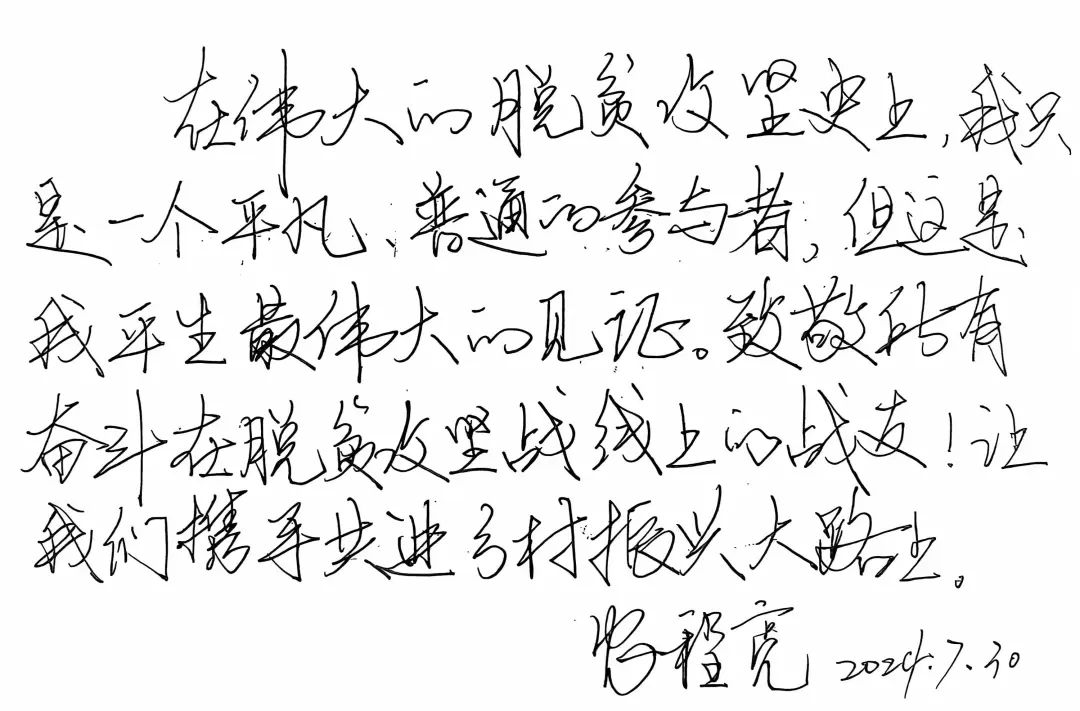 在伟大的脱贫攻坚史上,我只
是一个平凡、普通的参与者,但这是
我平生最伟大的见证。致敬所有
奋斗在脱贫攻坚战线上的战友!让
我们携手共进乡村振兴大路上。
程亮 2024.7.30